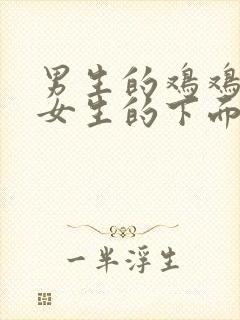 男生的鸡鸡
女生的下面
一半浮生